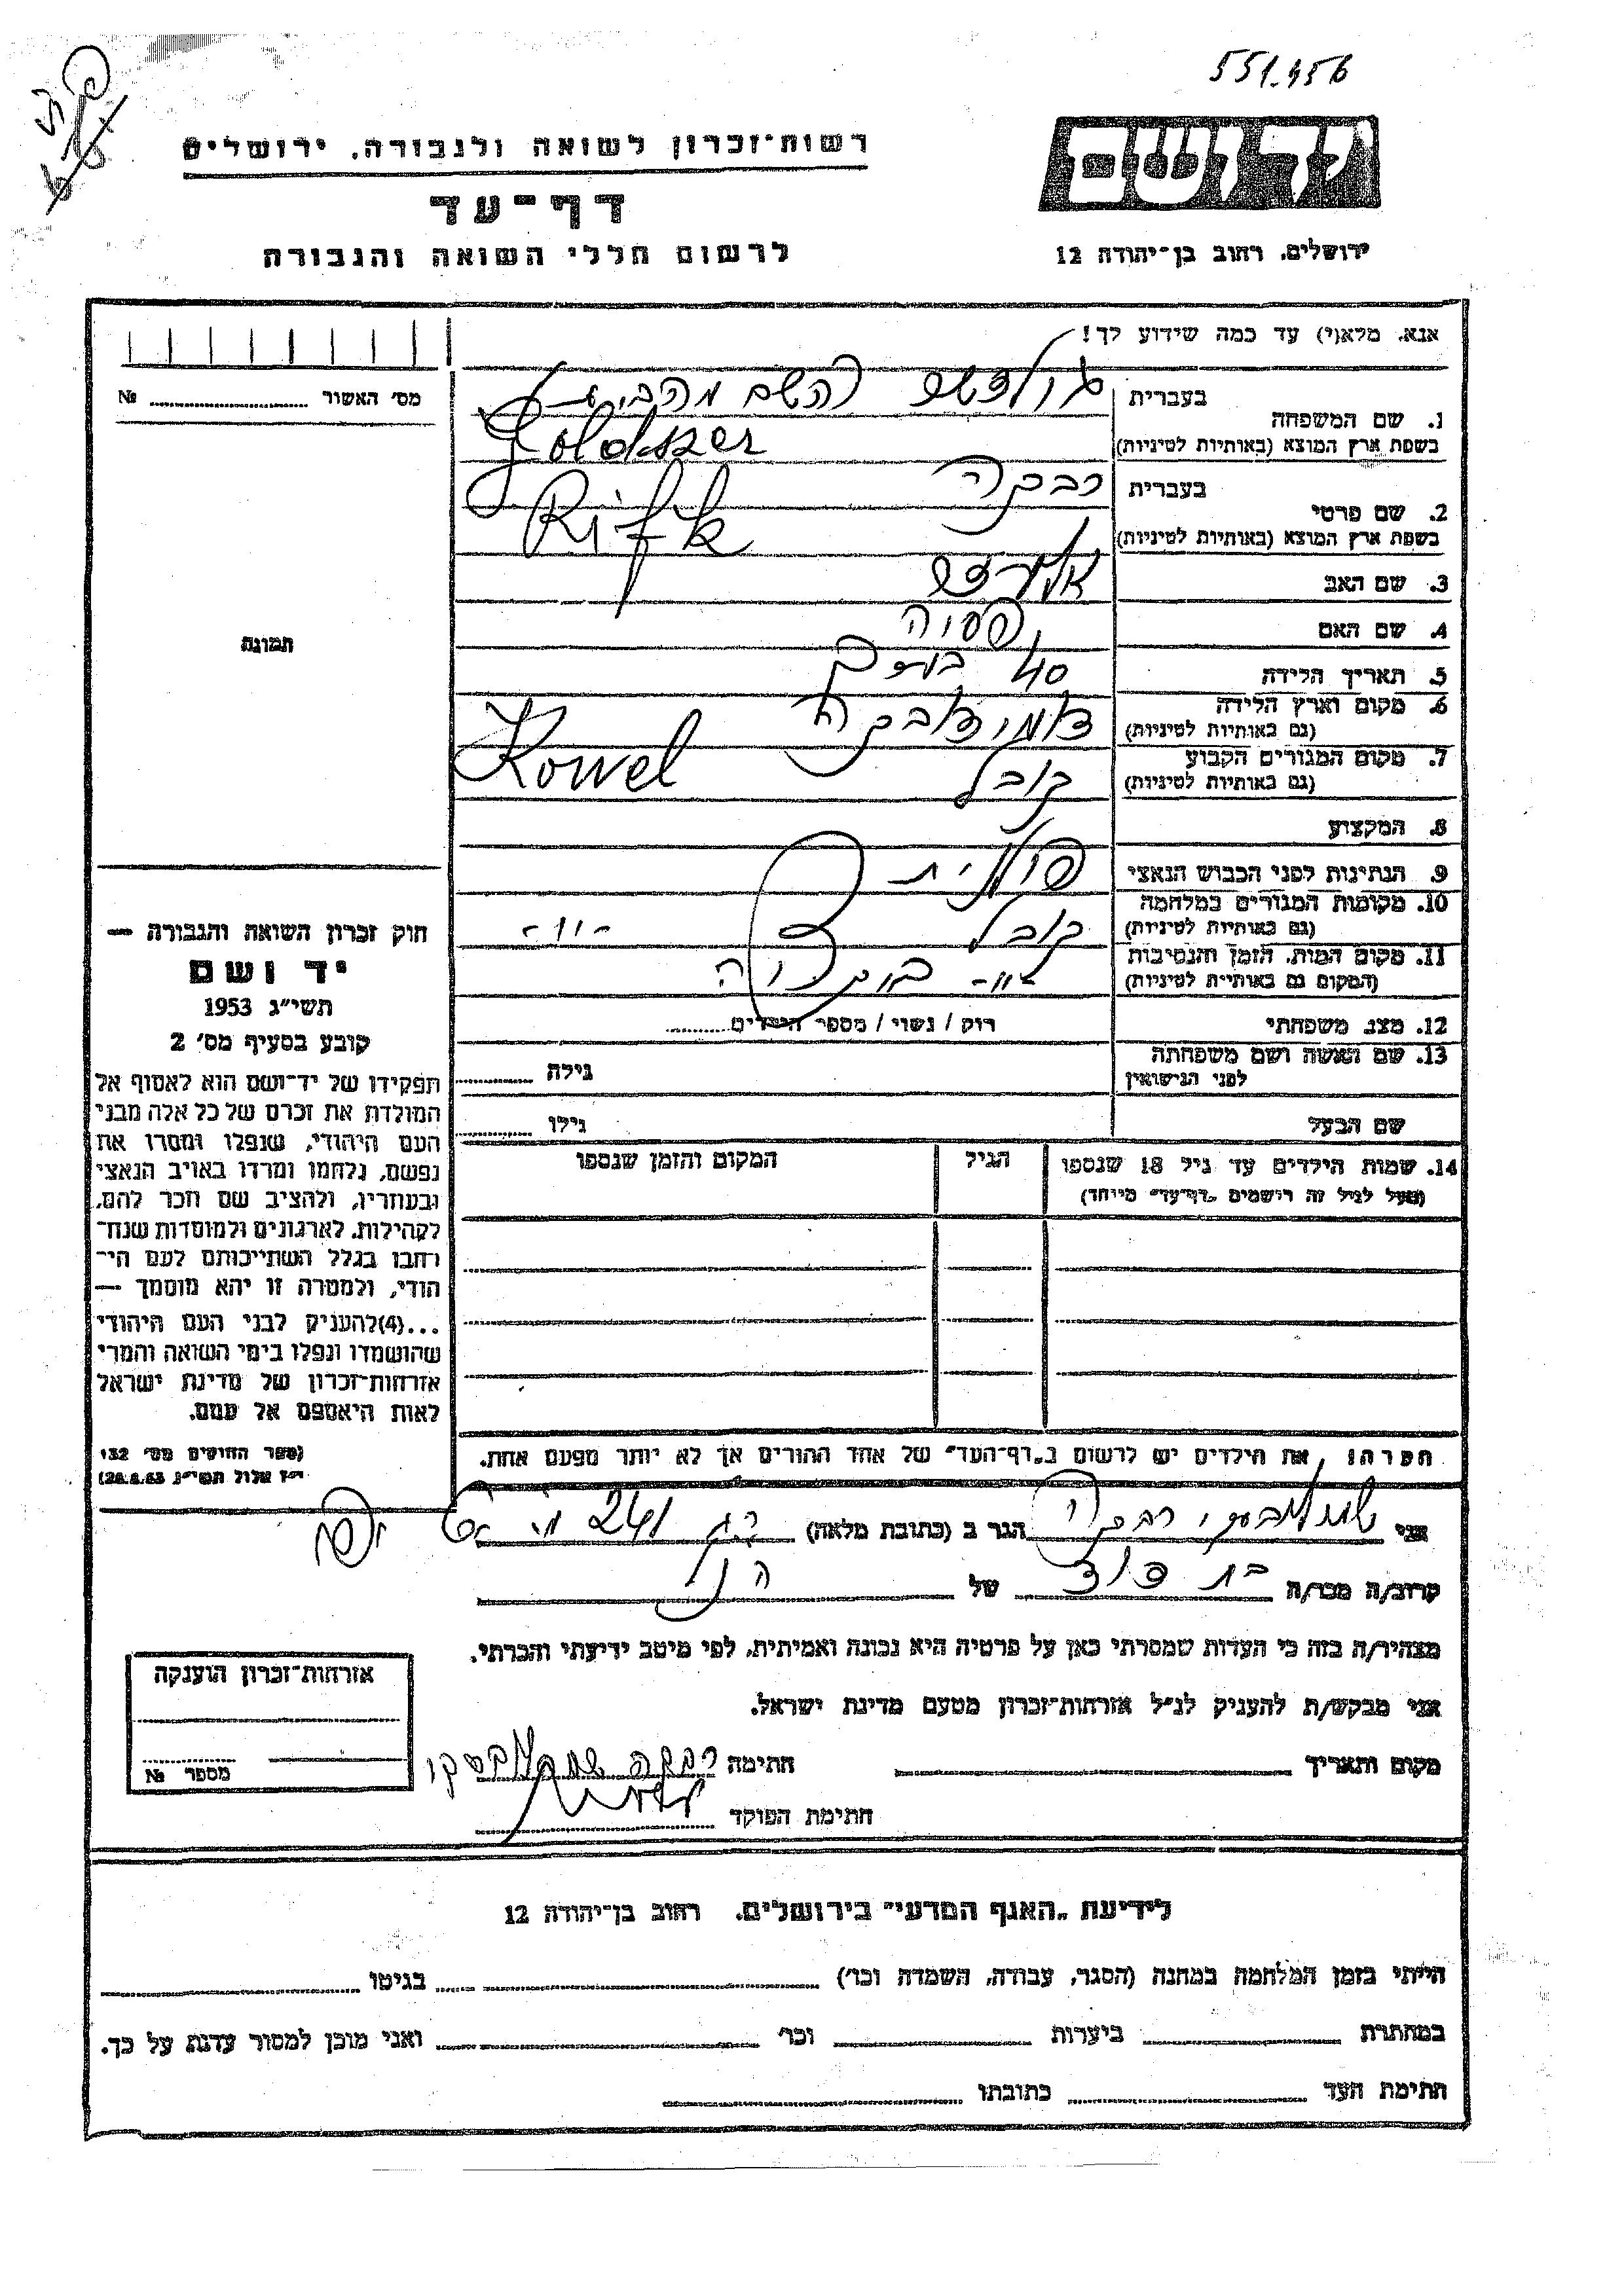 551456
יד ושם
רשות־זכרון לשואה ולגבורה, ירושלים
דף־עד
לרשום חללי השואה והגבורה
ירושלים, רחוב בן־יהודה 12
אנא, מלא(י) עד כמה שידוע לך!
מס׳ האשור № ........
1. שם המשפחה
בעברית
(השם מהבית)
בשפת ארץ המוצא (באותיות לטיניות) Goldszer
2. שם פרטי
בעברית רבקה
בשפת ארץ המוצא (באותיות לטיניות) Rifk
3. שם האב
4. שם האם פסיה
5. תאריך הלידה 40
6. מקום וארץ הלידה
(גם באותיות לטיניות)
7. מקום המגורים הקבוע קובל Kowel
(גם באותיות לטיניות)
8. המקצוע
9. הנתינות לפני הכבוש הנאצי פולנית
10. מקומות המגורים במלחמה קובל -״-
(גם באותיות לטיניות)
11. מקום המות, הזמן והנסיבות -״-
(המקום גם באותיות לטיניות)
12. מצב משפחתי רוק / נשוי / מספר הילדים........
13. שם האשה ושם משפחתה גילה ........
לפני הנישואין
שם הבעל גילו ........
14. שמות הילדים עד גיל 18 שנספו הגיל המקום והזמן שנספו
(מעל לגיל זה רושמים „דף־עד״ מיוחד)
הערה: את הילדים יש לרשום ב„דף־העד״ של אחד ההורים אך לא יותר מפעם אחת.
תמונה
חוק זכרון השואה והגבורה —
יד ושם
תשי״ג 1953
קובע בסעיף מס׳ 2
תפקידו של יד־ושם הוא לאסוף אל
המולדת את זכרם של כל אלה מבני
העם היהודי, שנפלו ומסרו את
נפשם, נלחמו ומרדו באויב הנאצי
ובעוזריו, ולהציב שם וזכר להם,
לקהילות, לארגונים ולמוסדות שנח־
רבו בגלל השתייכותם לעם הי־
הודי, ולמטרה זו יהא מוסמך —
...(4)להעניק לבני העם היהודי
שהושמדו ונפלו בימי השואה והמרי
אזרחות־זכרון של מדינת ישראל
לאות היאספם אל עמם.
(ספר החוקים מס׳ 132,
י״ז אלול תשי״ג 28.8.53)
אני רבקה הגר ב (כתובת מלאה) 241
קרוב/ה מכר/ה בת דוד של הנ״ל
מצהיר/ה בזה כי העדות שמסרתי כאן על פרטיה היא נכונה ואמיתית, לפי מיטב ידיעתי והכרתי.
אני מבקש/ת להעניק לנ״ל אזרחות־זכרון מטעם מדינת ישראל.
מקום ותאריך חתימה רבקה
חתימת הפוקד
אזרחות־זכרון הוענקה
מספר №
לידיעת „האגף המדעי״ בירושלים, רחוב בן־יהודה 12
הייתי בזמן המלחמה במחנה (הסגר, עבודה, השמדה וכו׳) בגיטו
במחתרת ביערות וכו׳ ואני מוכן למסור עדות על כך.
חתימת העד כתובתו